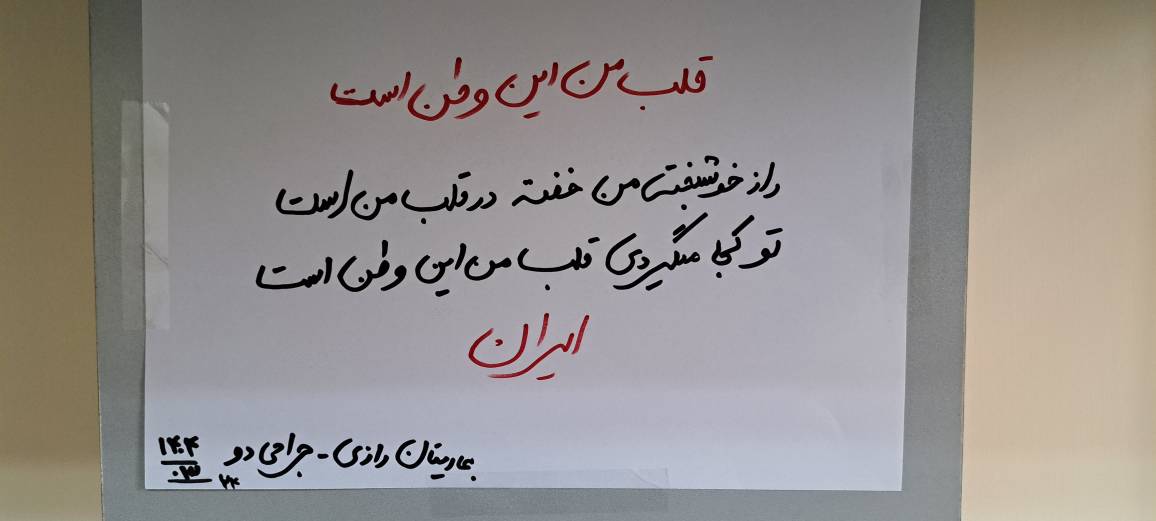 قلب من این وطن است
راز خوشبختی من خفته در قلب من است
تو کجا میگردی قلب من این وطن است
ایران
بیمارستان رازی - جراحی دو
۱۴۰۴
۰۳
۲۴